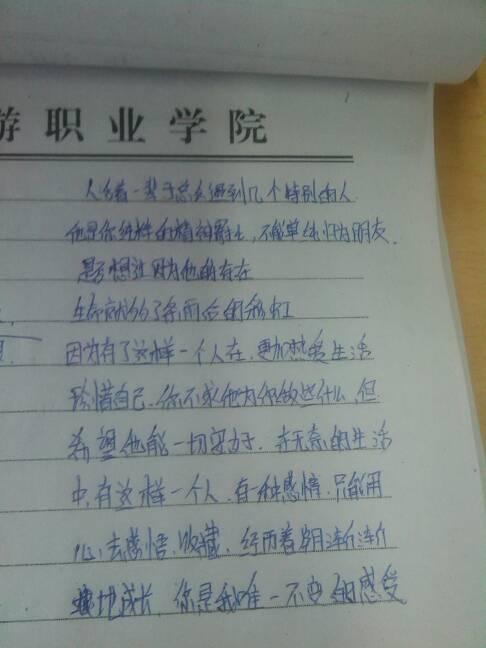 游职业学院
人活着一辈子总会遇到几个特别的人
他是你纯粹的精神爵士,不能单纯归为朋友.
是否想过因为他的存在
生命就多了条雨后的彩虹
因为有了这样一个人在,更加热爱生活
珍惜自己.你不求他为你做些什么,但
希望他能一切安好.在无奈的生活
中,有这样一个人,有一种感情,只能用
心去感悟、收藏、经历着岁月渐渐
地成长,你是我唯一不变的感受